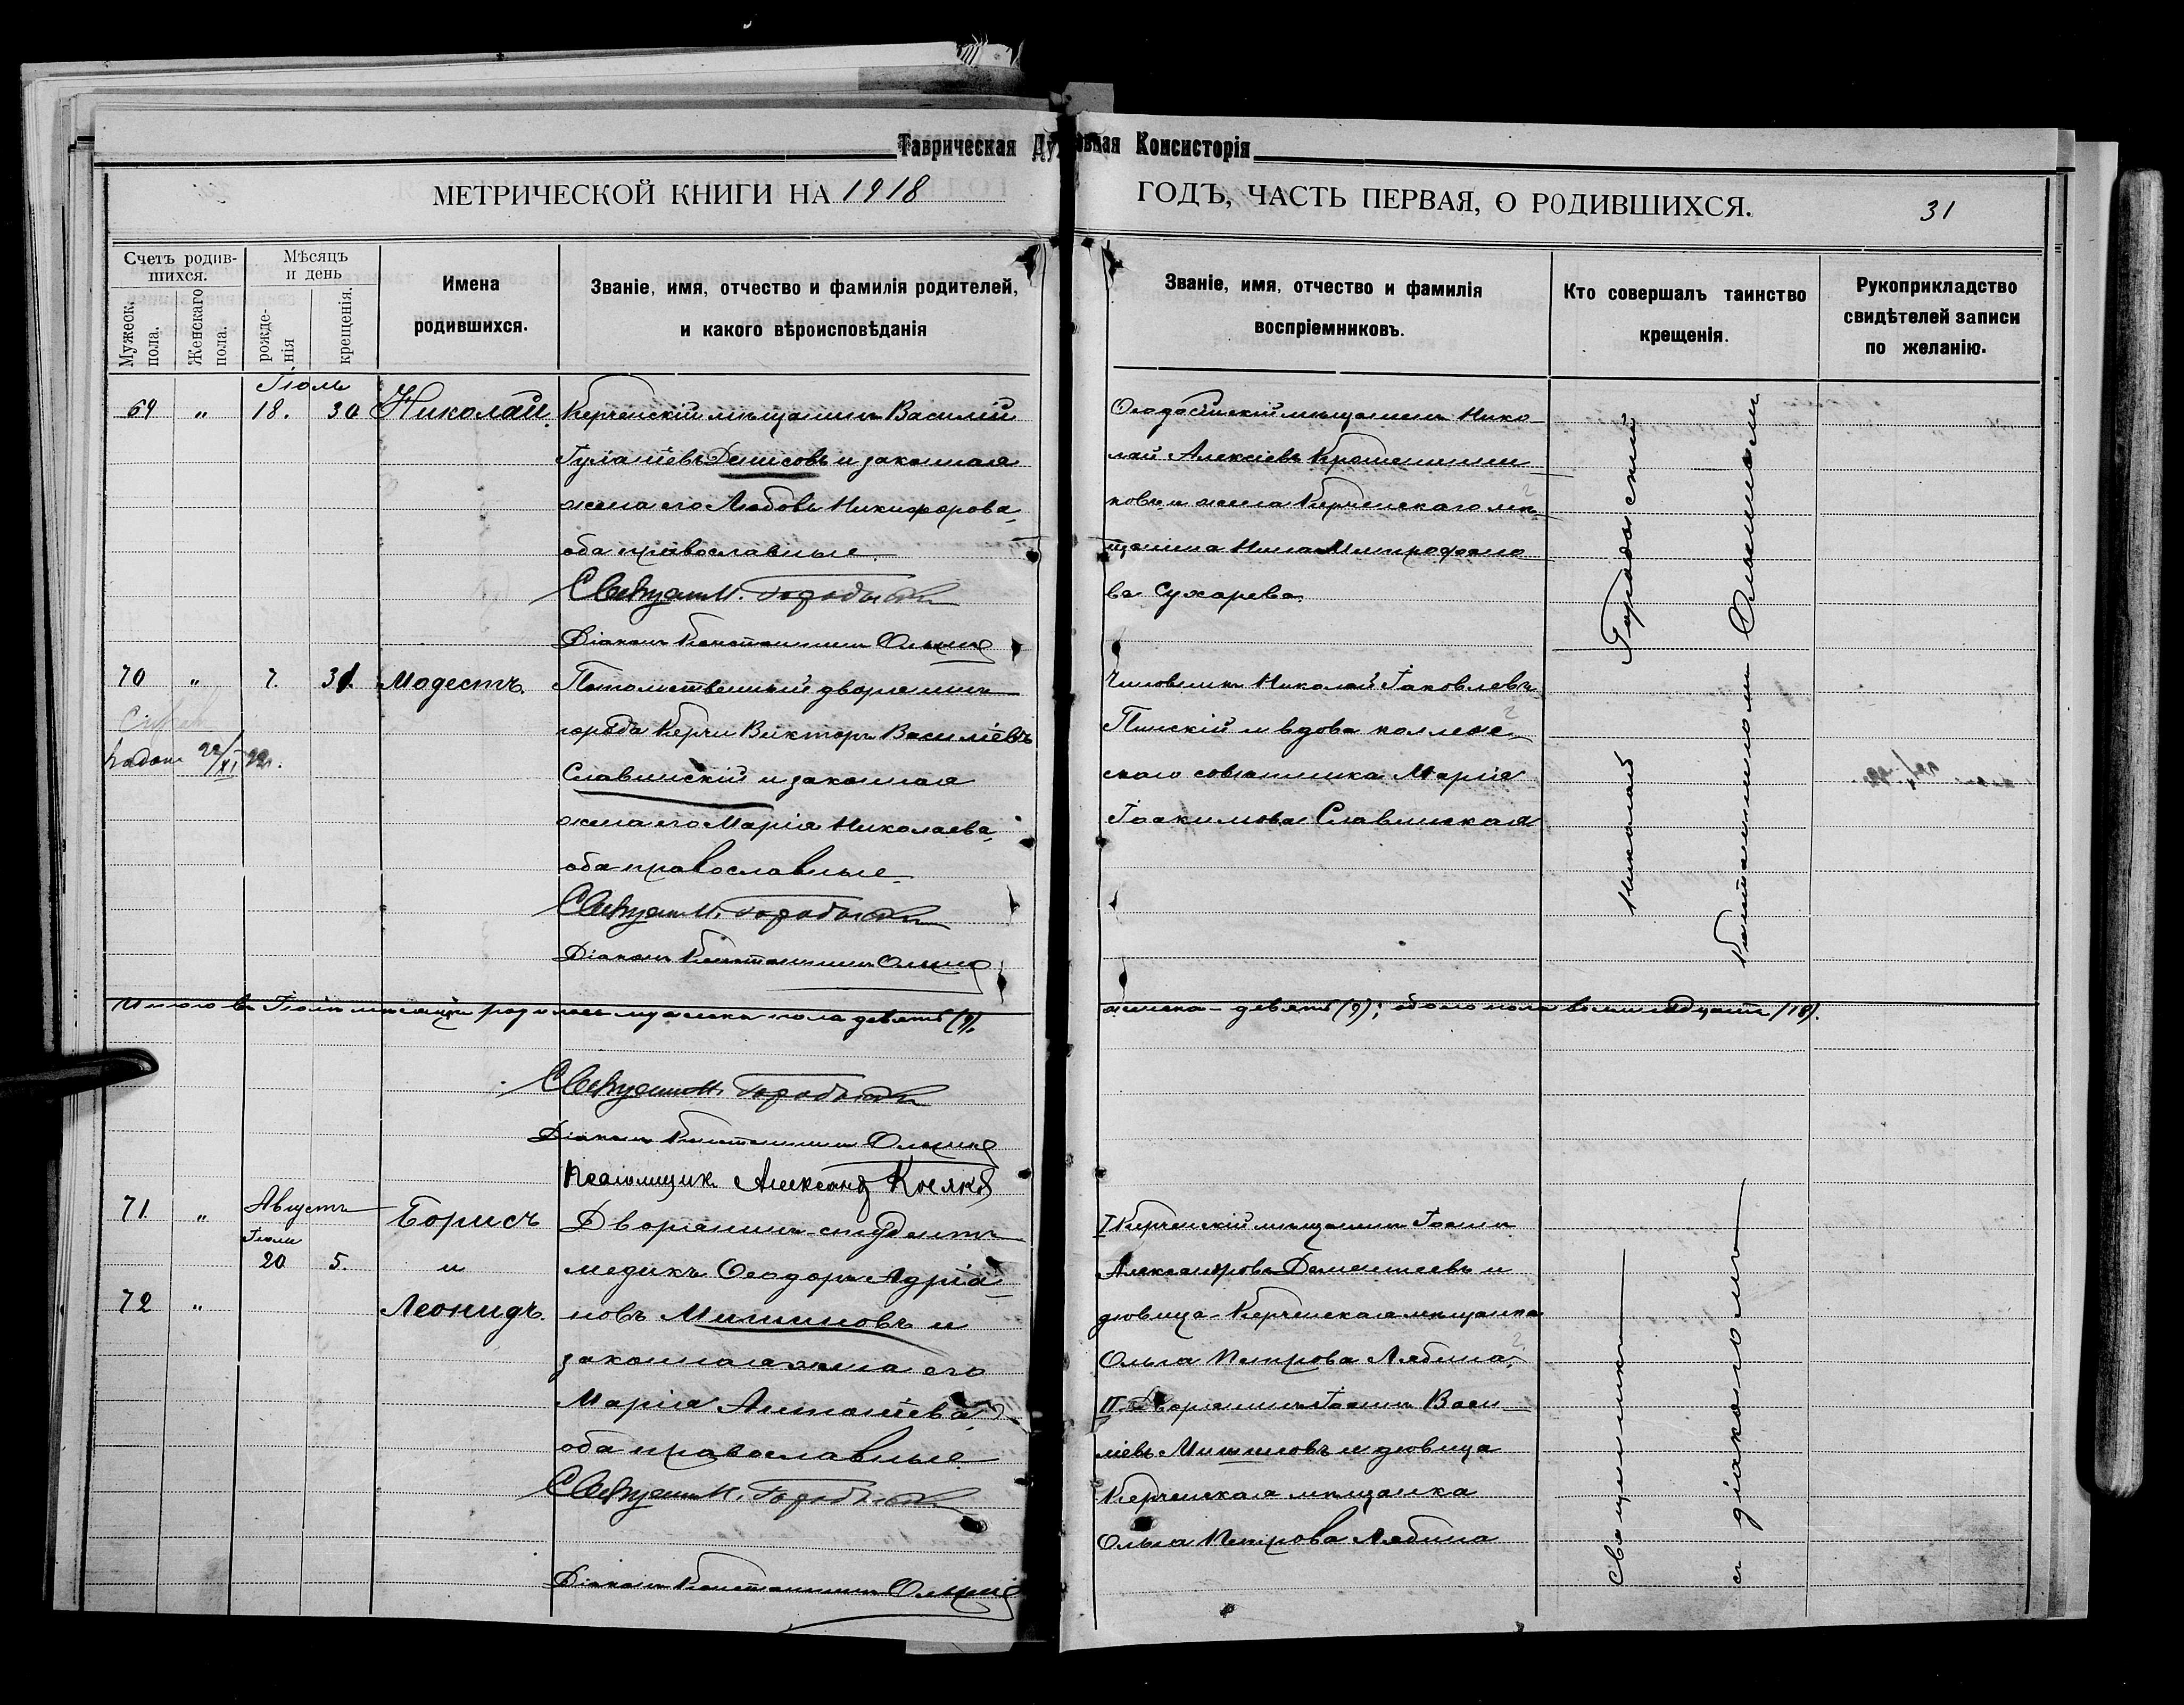 Таврическая Духовная Консисторія
МЕТРИЧЕСКОЙ КНИГИ НА 1918 ГОДЪ, ЧАСТЬ ПЕРВАЯ, О РОДИВШИХСЯ. 31
Счетъ родив-
шихся.
Мужеск. пола.
Женскаго пола.
Мѣсяцъ
и день
рожде-
нія
крещенія.
Имена
родившихся.
Званіе, имя, отчество и фамилія родителей,
и какого вѣроисповѣданія
Званіе, имя, отчество и фамилія
воспріемниковъ.
Кто совершалъ таинство
крещенія.
Рукоприкладство
свидѣтелей записи
по желанію.
Іюль
69 " 18. 30 Николай. Керченскій мѣщанинъ Василій
Гуліаніевъ Денисовъ и законная
жена его Любовь Никифорова,
оба православные.
Свящ. Н. Городыскій
Діаконъ Константинъ
Ѳеодосійскій мѣщанинъ Нико-
лай Алексіевъ
ковъ и жена Керченскаго мѣ-
щанина Нина Митрофано
ва Сухарева.
70 " 7. 31. Модестъ. Потомственный дворянинъ
города Керчи Викторъ Василіевъ
Славинскій и законная
жена его Марія Николаева,
оба православные.
Свящ. Н. Городыскій
Діаконъ Константинъ
22/XI 22.
Чиновникъ Николай Іаковлевъ
Пинскій и вдова коллеж-
скаго совѣтника Марія
Іоакимова Славинская
Священникъ Николай Городыскій
съ діакономъ Константиномъ
Итого въ Іюлѣ мѣсяцѣ родилось мужска пола девять (9),
женска - девять (9); обоего пола восемнадцать (18).
Свящ. Н. Городыскій
Діаконъ Константинъ
Псаломщик Александр Косяков
Августъ
71. " Борисъ Дворянинъ-студентъ
Іюля
20 5. и медикъ Ѳеодоръ Адріа-
72 " Леонидъ. новъ Мишиновъ и
законная жена его
Марія Антоніева,
оба православные.
Свящ. Н. Городыскій
Діаконъ Константинъ
I Керченскій мѣщанинъ Іоаннъ
Александровъ Дементьевъ и
дѣвица-Керченская мѣщанка
Ольга Петрова Лябина,
II Дворянинъ Іоаннъ Васи-
ліевъ Мишиновъ и дѣвица
Керченская мѣщанка
Ольга Петрова Лябина